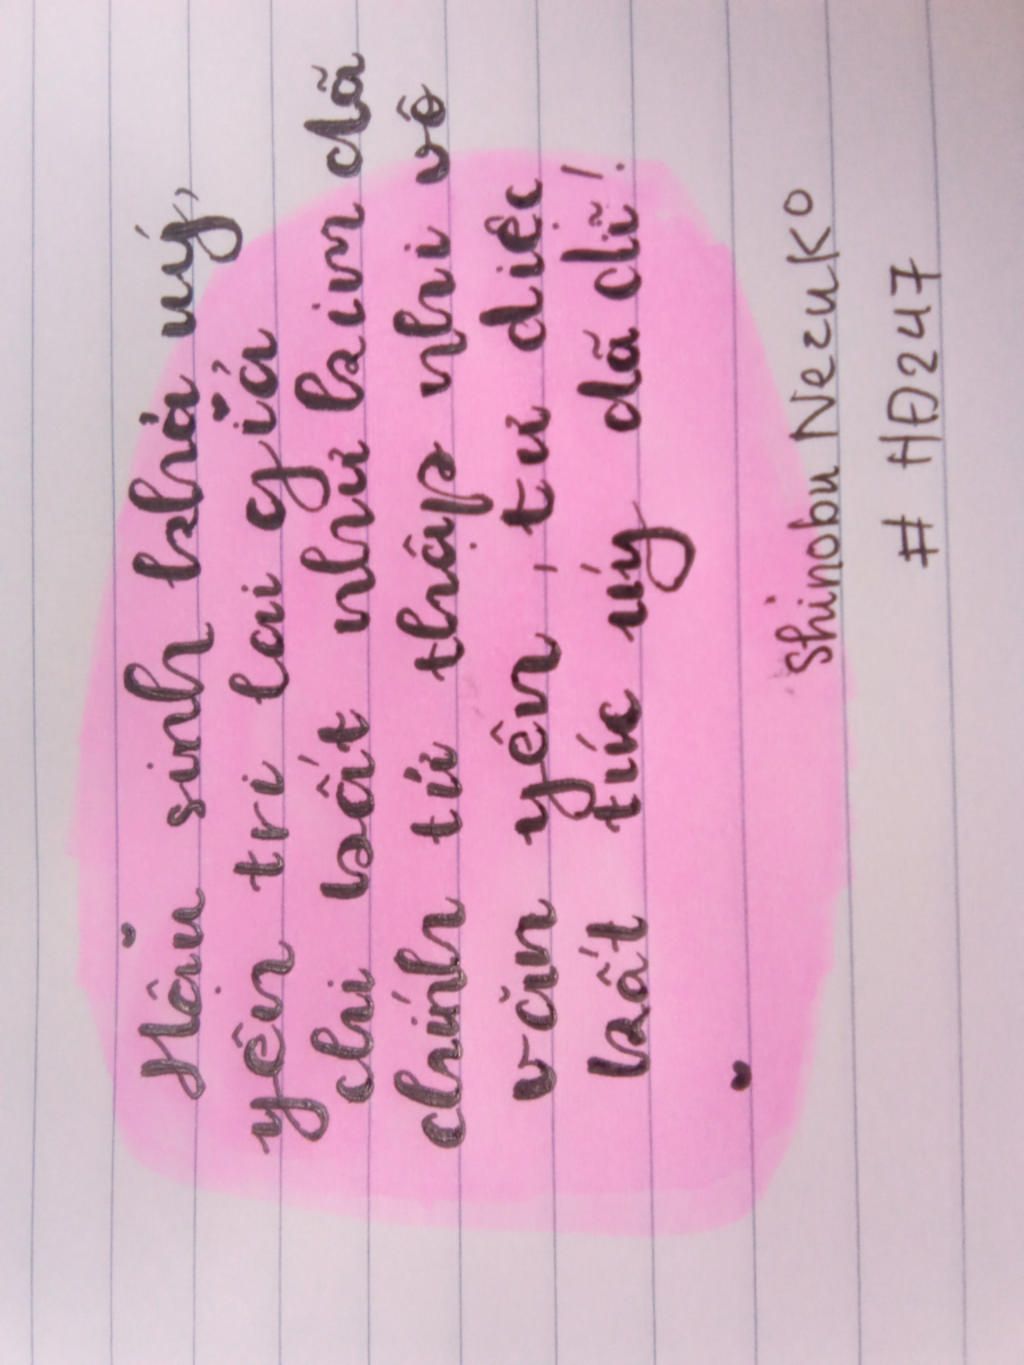 Hậu sinh khả uý,
yên tri lai giả
chi bất như kim dã
chính tứ thập nhi vô
văn yên, tư diệc
bất túc úy dã dĩ!
Shinobu Nezuko
# HĐ247